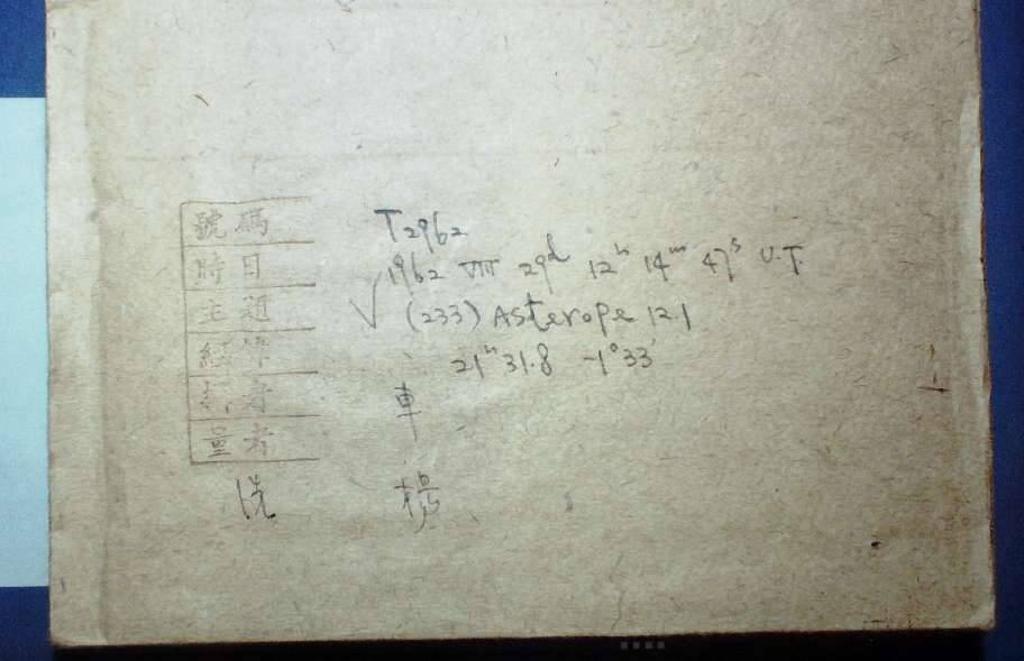 號碼 T2962
時日 1962 VIII 29d 12h 14m 47s U.T.
主題 √ (233) Asterope 12.1
21h 31.8 -1°33'
者 車
量者
洗 楊